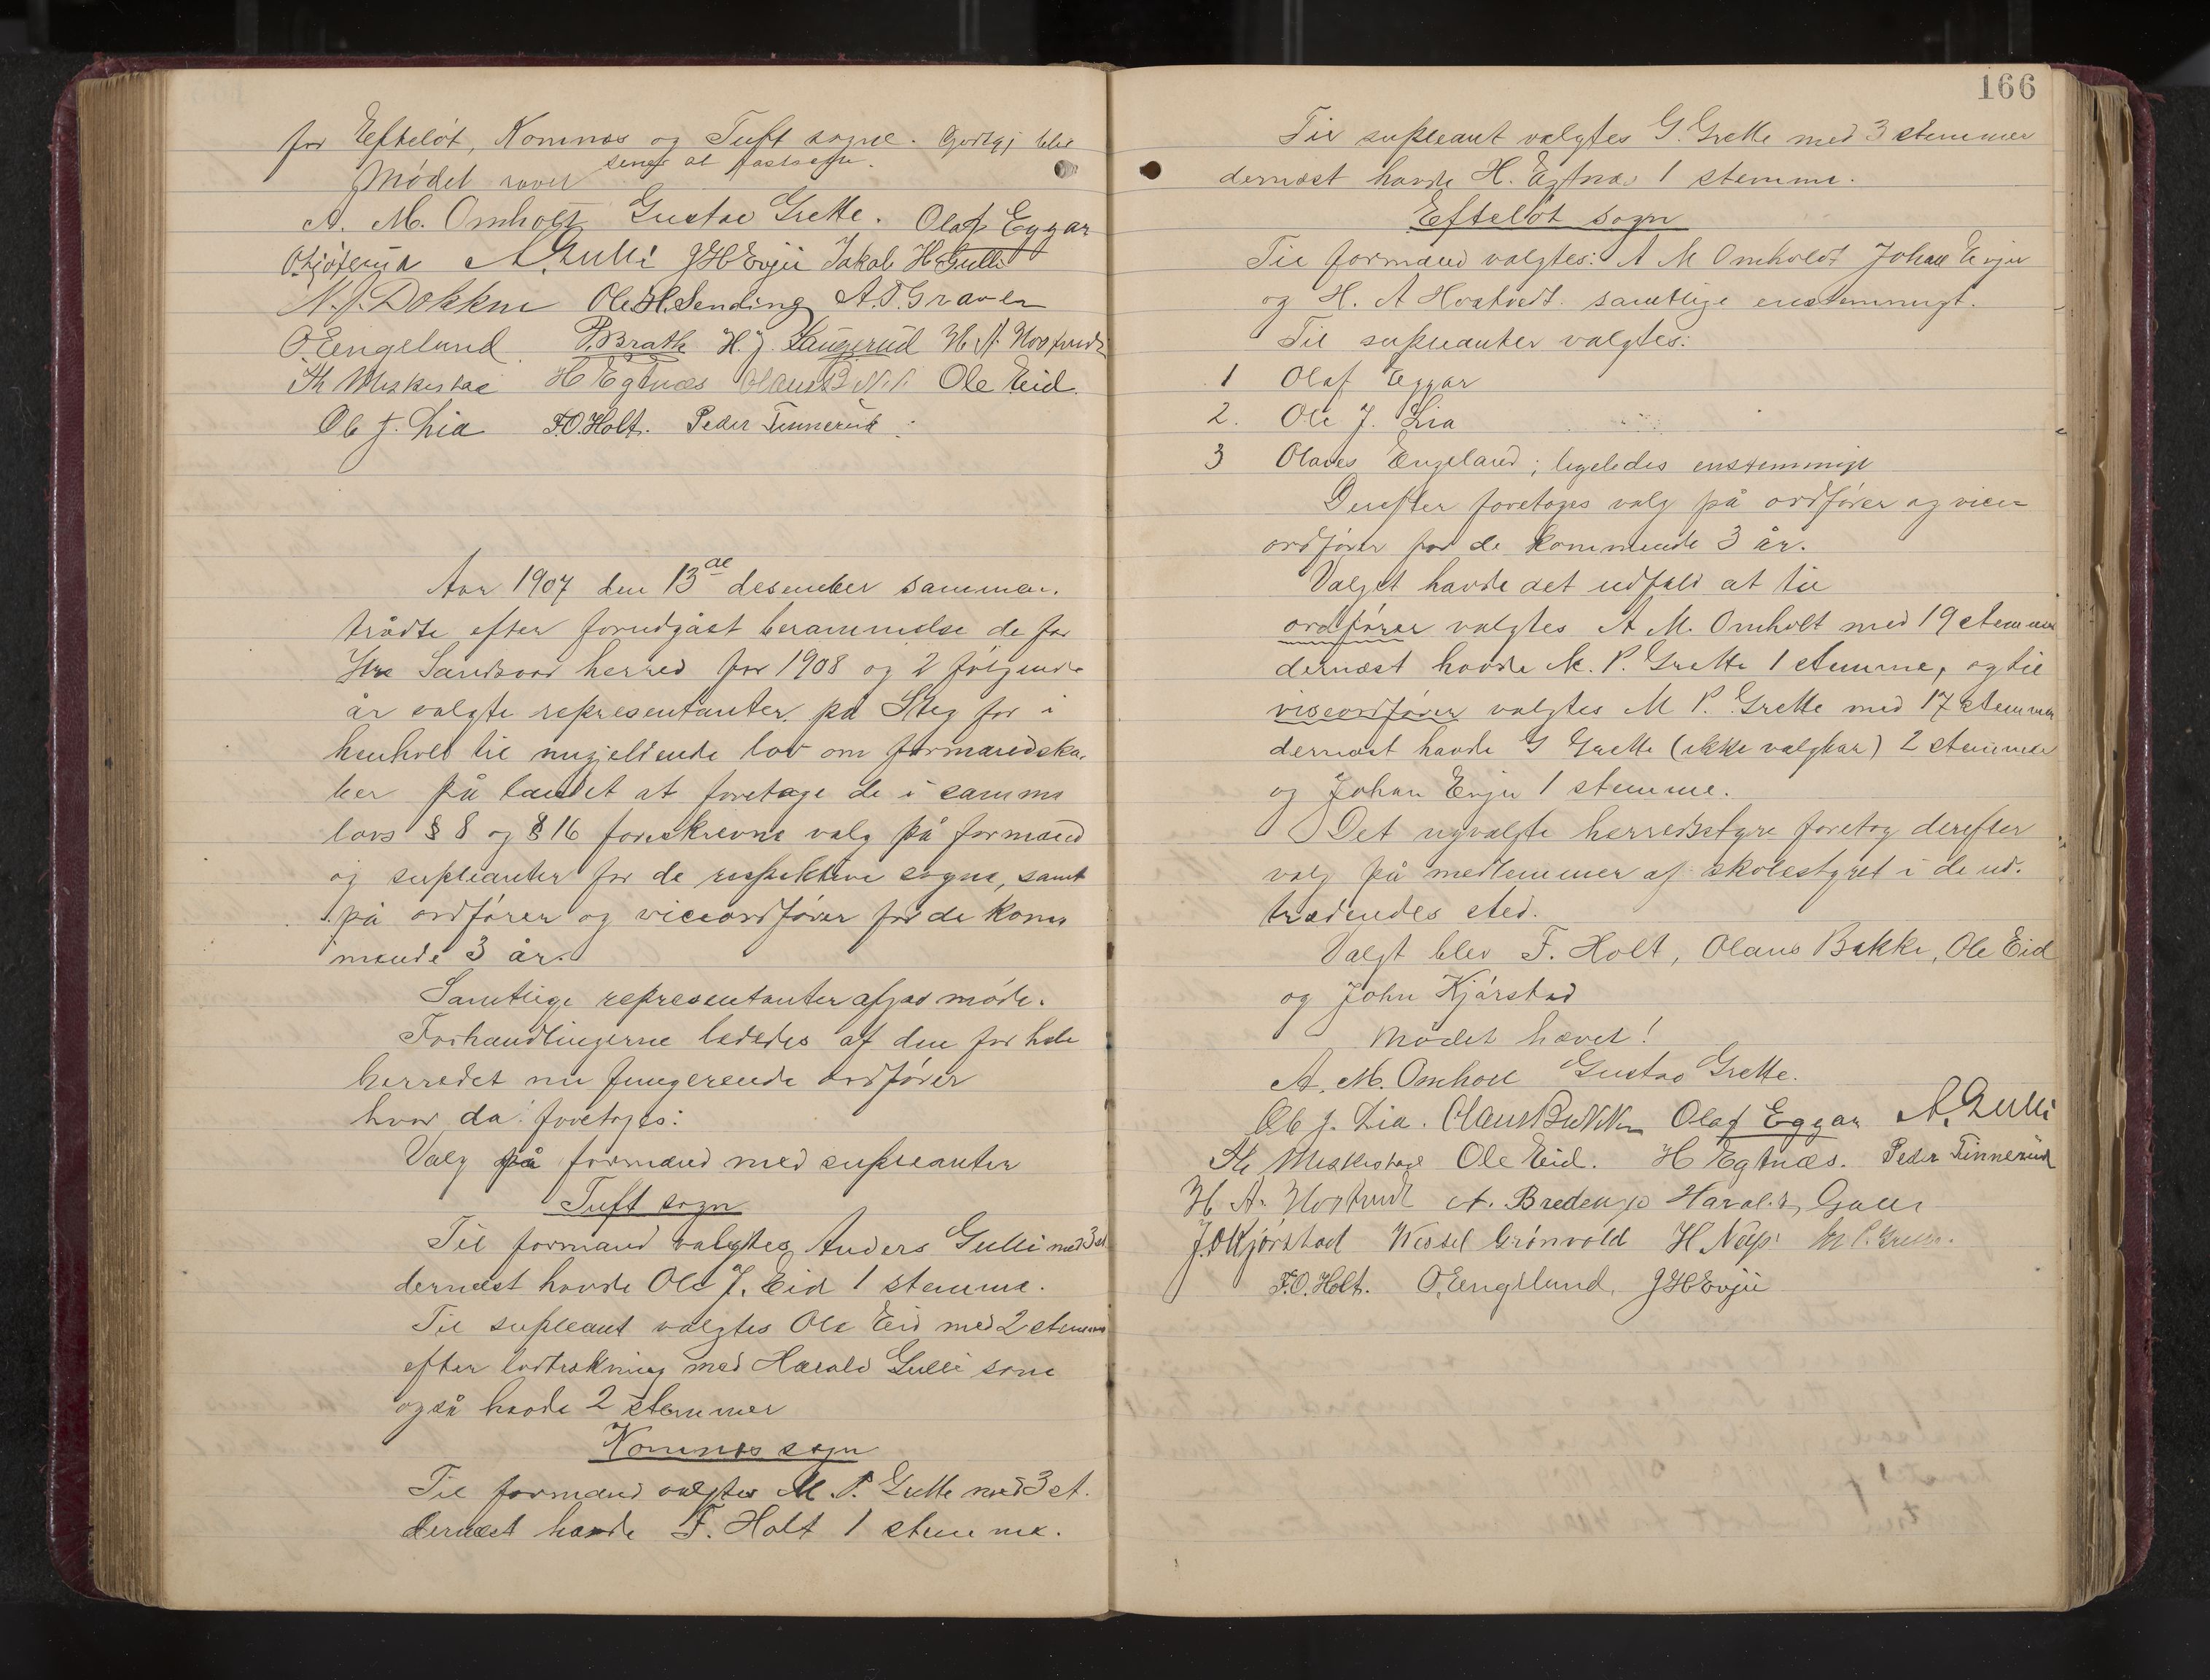 for Efteløt, Komnes og Tuft sogne. Godtgj blir
senere at fastsætte.
Mødet hævet
A. M. Omholt Gustav Grette. Olaf Eggar
A. Gulli J H Evju Jakob H. Gulli
N. J. Dokken Ole H. Sending A. T. Graver
O. Engelund P. Brath H. J. Laugerud H. A. Hostvedt
Th Meskestad H Egtnæs Olaus B Ole Eid.
Ole J. Lia F.O. Holt. Peder Tinnerud
Aar 1907 den 13de desember sammen-
trådte efter forudgåat berammelse de for
Ytre Sandsvær herred for 1908 og 2 følgende
år valgte representanter på Steg for i
henhold til nugjeldende lov om formandska-
ber på landet at foretage de i samme
lovs § 8 og § 16 foreskrevne valg på formænd
og supleanter for de respektive sogne, samt
på ordfører og viceordfører for de kom-
mende 3 år.
Samtlige representanter afgav møde.
Forhandlingerne lededes af den for hele
herredet nu fungerende ordfører
hvor da foretoges:
Valg på formænd med supleanter
Tuft sogn
Til formand valgtes Anders Gulli med 3 st
dernæst havde Ole J. Eid 1 stemme.
Til supleant valgtes Ole Eid med 2 stemmer
efter lodtrækning med Harald Gulli som
også havde 2 stemmer
Komnes sogn
Til formand valgtes M. P. Grette med 3 st.
dernæst havde F. Holt 1 stemme.
166
Til supleant valgtes G. Grette med 3 stemmer
dernæst havde H. Egtnæs 1 stemme.
Efteløt sogn
Til formænd valgtes: A M Omholdt Johan Evju
og H. A Hostvedt. samtlige enstemmigt.
Til supleanter valgtes:
1 Olaf Eggar
2. Ole J. Lia
3 Olaves Engeland; ligeledes enstemmigt
Derefter foretoges valg på ordfører og vice-
ordfører for de kommende 3 år.
Valget havde det udfald at til
ordfører valgtes A M. Omholt med 19 stemmer
dernæst havde M. P. Grette 1 stemme, og til
viseordfører valgtes M P. Grette med 17 stemmer
dernæst havde G Grette (ikke valgbar) 2 stemmer
og Johan Evju 1 stemme.
Det nyvalgte herredsstyre foretog derefter
valg på medlemmer af skolestyret i de ud-
trædendes sted.
Valgt blev F. Holt, Olaus Bakke, Ole Eid
og John Kjørstad
Mødet hævet!
A. M. Omholt Gustav Grette.
Ole J. Lia. Olaus Bakken Olaf Eggar A. Gulli
Th Meskestad Ole Eid. H Egtnæs. Peder Tinnerud
H. A. Hostvedt A. Bredenje Harald Gulli
J. O Kjørstad Wessel Grønvold H M P. Grette.
F.O. Holt. O. Engelund, J H Evju